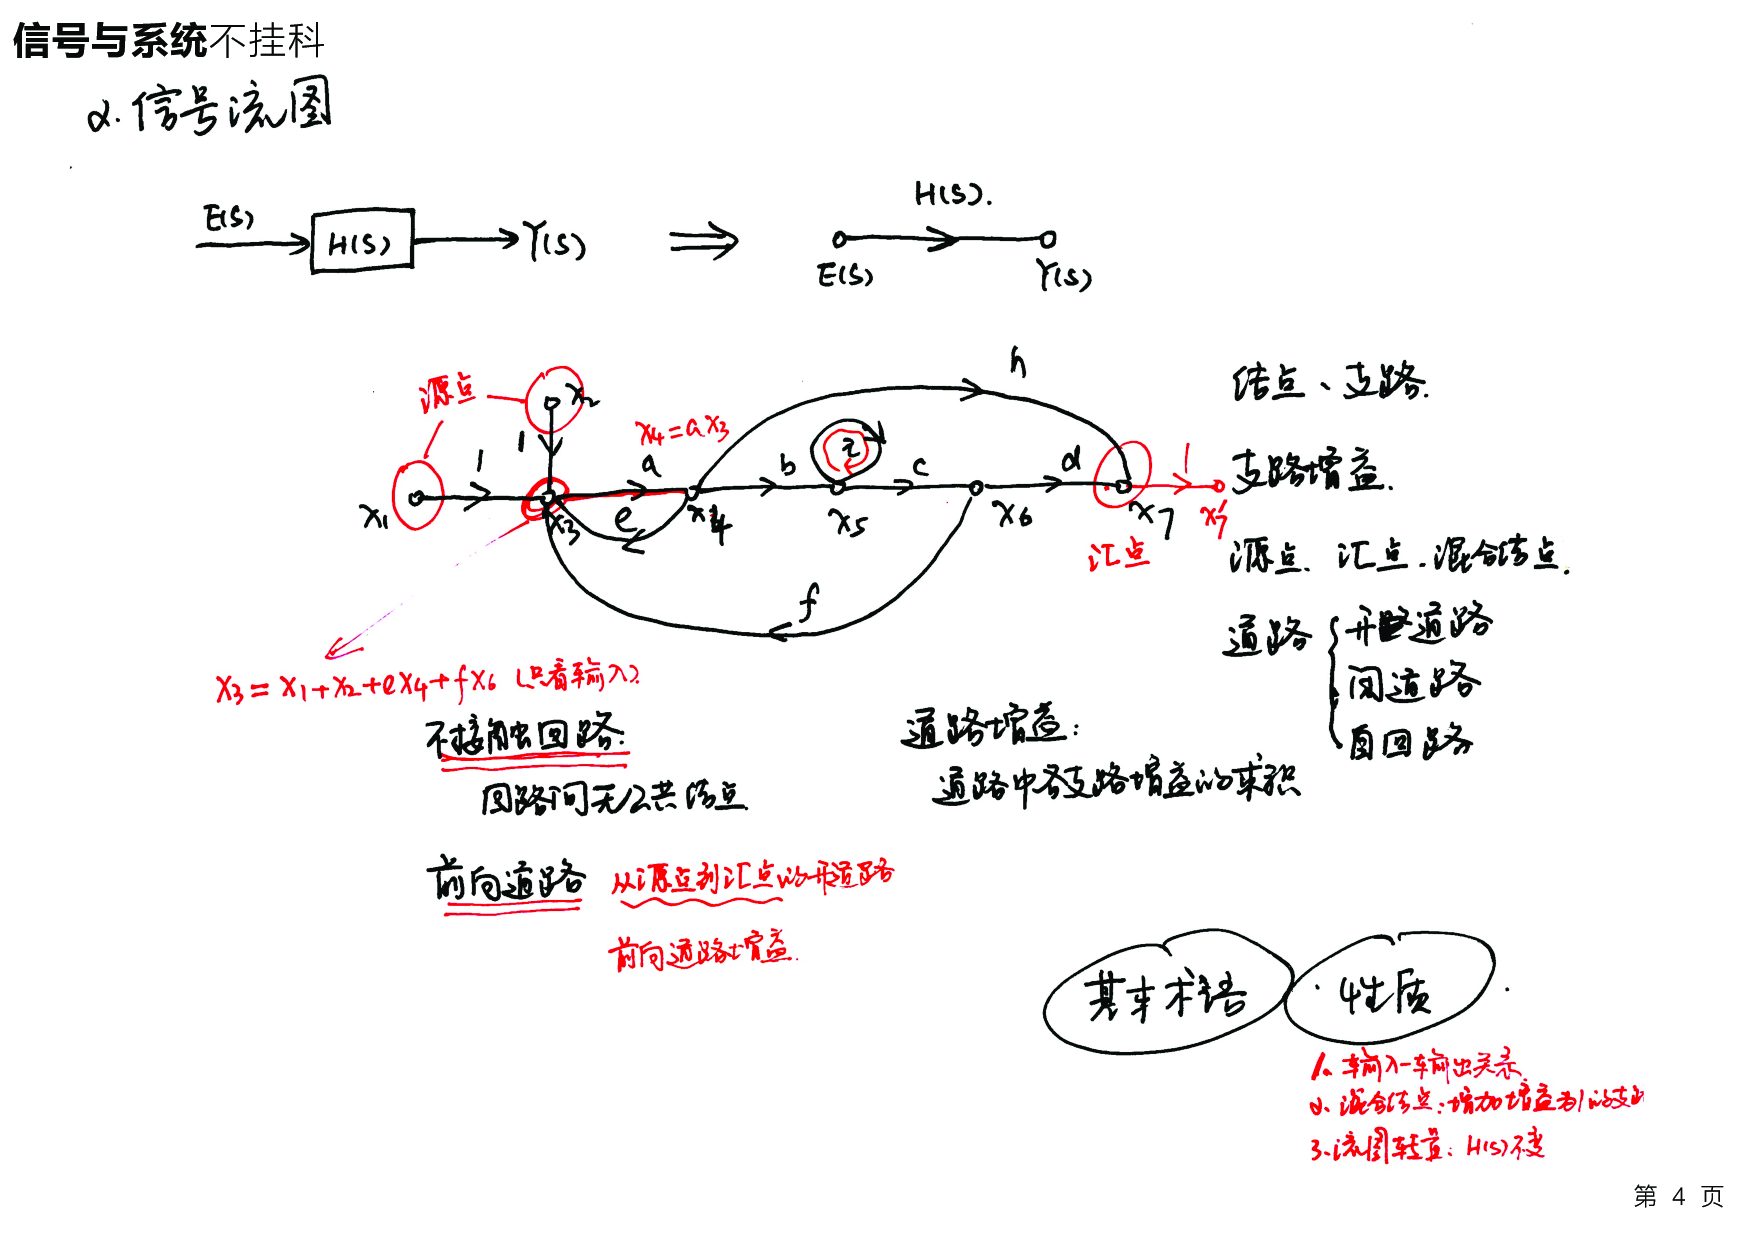 信号与系统不挂科
2. 信号流图
E(S)
H(S)
Y(S)
H(S).
E(S)
Y(S)
h
结点、支路.
源点
x₂
x₄=ax₃
1
1
a
b
i
c
d
1
支路增益.
x₁
x₃
e
x₄
x₅
x₆
x₇
x₇'
汇点
源点、汇点.混合结点.
f
道路
开道路
闭道路
自回路
x₃=x₁+x₂+ex₄+fx₆ (只看输入)
不接触回路:
回路间无公共结点
道路增益:
道路中各支路增益的乘积
前向道路
从源点到汇点的开道路
前向道路增益.
基本术语
性质
1. 输入-输出关系
2. 混合结点:增加增益为1的支路
3. 流图转置: H(s)不变
第 4 页